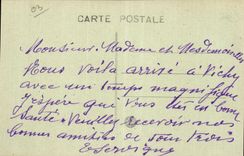 03
CARTE POSTALE
Monsieur Madame et Mesdemoiselles
Nous voila arrivé à Vichy
avec un temps magnifique
J'espère que vous êtes en bonne
Santé Veuillez recevoir nos
bonnes amitiés de tous trois